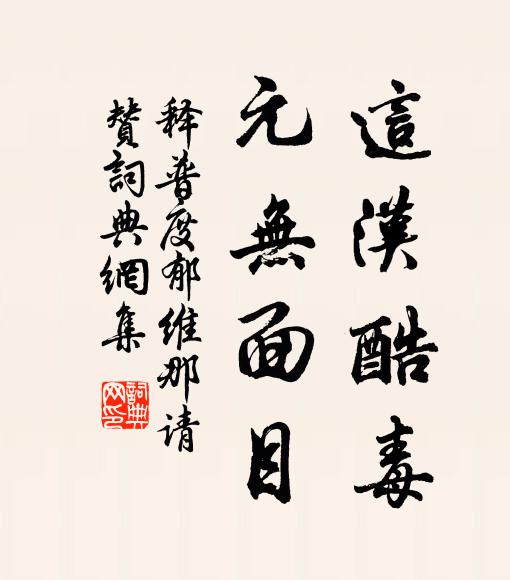 這漢酷毒
元無面目
释普度郁維那请
贊詞典網集
詞典網印